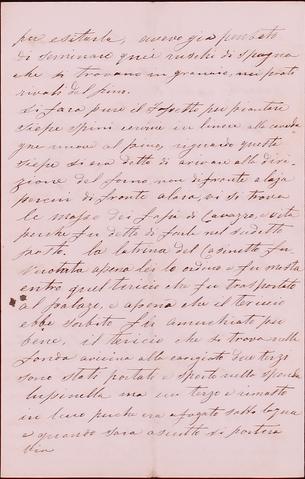 per esitarle, avevo gia pensato
di seminare quei ruschi di spagna
che si trovano in granaio, nei prati
rivali del fumo.
Si fara pure il fosetto per piantare
siepe spini in linea alle
nuove al fumo, riguardo questa
siepe si era detto di arivare alla divi-
zione del forno, non di fronte alaja
percui di fronte alara, vi si trova
le mase dei fasi di Cavazzo, e
perche fu detto di farle nel sudetto
posto. la latrina del Casinetto fu
vicuata apena lei lo ordino e fu mesta
entro quel tericio che fu trasportato
al palaze, e apena che il tericio
ebbe sorbito fu amuchiato per
bene, il tericio che si trova nella
fonda avicina alle cangiate Due terzo
sono stati portati e sporte nella sponda
lupinella ma un terzo e rimasto
in luvo perche era afogato sotto laqua
e quando sara asciutto si portera
via